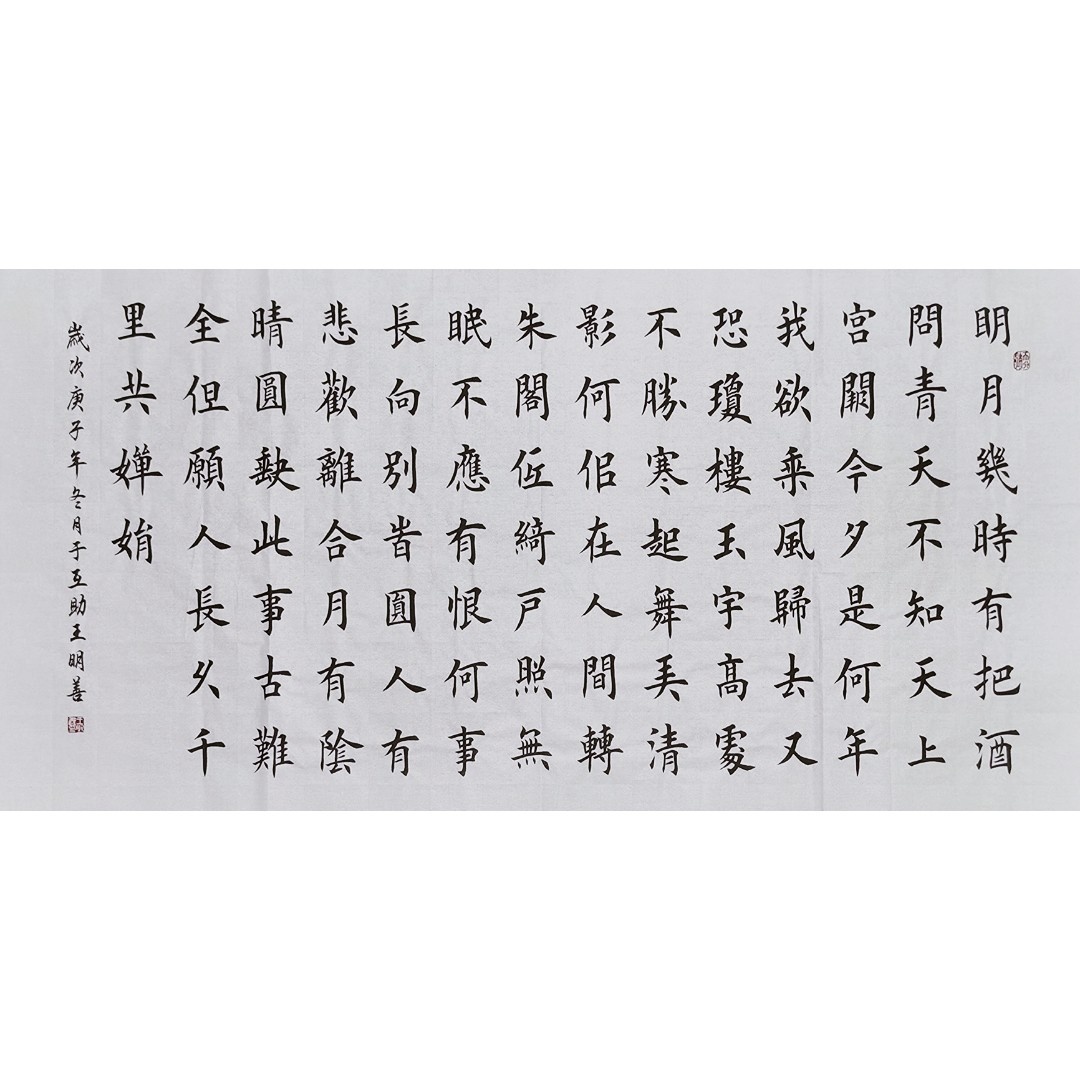 明月幾時有把酒
問青天不知天上
宮闕今夕是何年
我欲乘風歸去又
恐瓊樓玉宇高處
不勝寒起舞弄清
影何佀在人間轉
朱閣低綺戶照無
眠不應有恨何事
長向別旹圓人有
悲歡離合月有陰
晴圓缺此事古難
全但願人長久千
里共嬋娟
歲次庚子年冬月于互助王明善